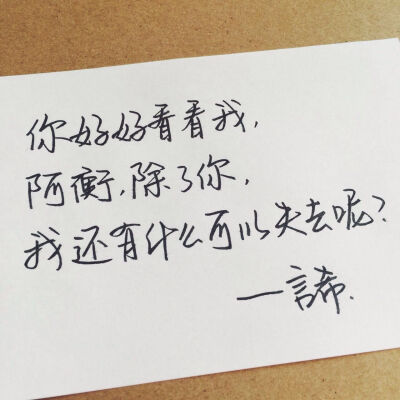 你好好看看我,
阿衡,除了你,
我还有什么可以失去呢?
一言希.